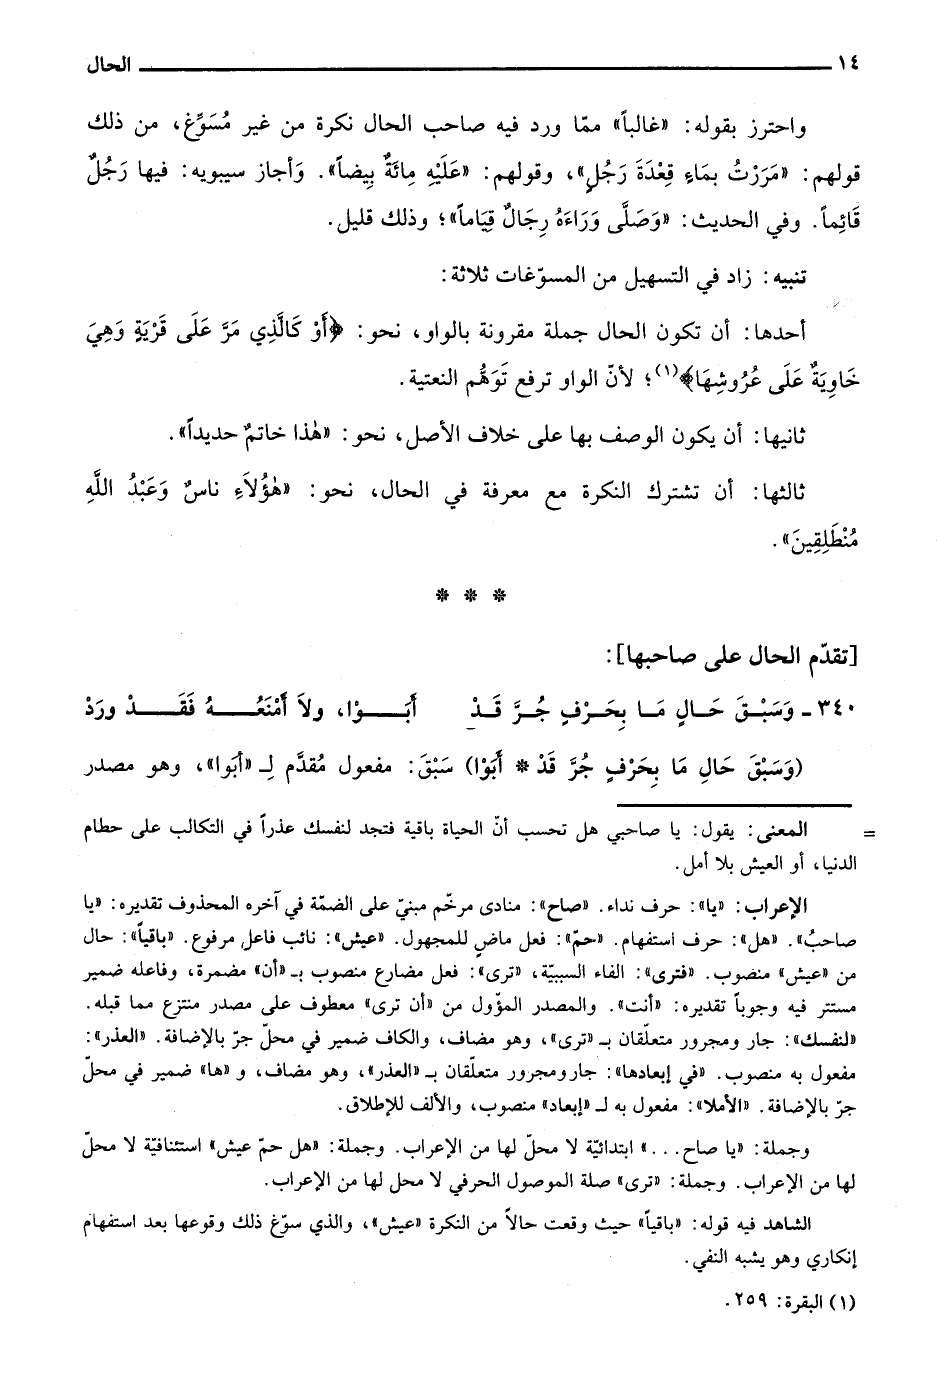 ١٤ الحال
واحترز بقوله: «غالباً» ممّا ورد فيه صاحب الحال نكرة من غير مُسَوِّغ، من ذلك
قولهم: «مَرَرْتُ بمَاءٍ قِعْدَةَ رَجُلٍ»، وقولهم: «عَلَيْهِ مِائَةٌ بِيضاً». وَأجاز سيبويه: فيها رَجُلٌ
قَائِماً. وفي الحديث: «وَصَلَّى وَرَاءَهُ رِجَالٌ قِيَاماً»؛ وذلك قليل.
تنبيه: زاد في التسهيل من المسوّغات ثلاثة:
أحدها: أن تكون الحال جملة مقرونة بالواو، نحو: ﴿أَوْ كَالَّذِي مَرَّ عَلَى قَرْيَةٍ وَهِيَ
خَاوِيَةٌ عَلَى عُرُوشِهَا﴾(١)؛ لأنّ الواو ترفع تَوَهُّم النعتية.
ثانيها: أن يكون الوصف بها على خلاف الأصل، نحو: «هٰذا خاتمٌ حديداً».
ثالثها: أن تشترك النكرة مع معرفة في الحال، نحو: «هٰؤُلاَءِ ناسٌ وَعَبْدُ اللَّهِ
مُنْطَلِقِينَ».
* * *
[تقدّم الحال على صاحبها]:
٣٤٠ ـ وَسَبْقَ حَالٍ مَا بِحَرْفٍ جُرَّ قَدْ أَبَوْا، ولاَ أَمْنَعُهُ فَقَدْ ورَدْ
(وَسَبْقَ حَالِ مَا بِحَرْفٍ جُرَّ قَدْ * أَبَوْا) سَبْقَ: مفعول مُقدَّم لِـ «أبَوا»، وهو مصدر
= المعنى: يقول: يا صاحبي هل تحسب أنّ الحياة باقية فتجد لنفسك عذراً في التكالب على حطام
الدنيا، أو العيش بلا أمل.
الإعراب: «يا»: حرف نداء. «صاح»: منادى مرخّم مبنيّ على الضمّة في آخره المحذوف تقديره: «يا
صاحبُ». «هل»: حرف استفهام. «حمّ»: فعل ماضٍ للمجهول. «عيش»: نائب فاعل مرفوع. «باقياً»: حال
من «عيش» منصوب. «فترى»: الفاء السببيّة، «ترى»: فعل مضارع منصوب بـ «أن» مضمرة، وفاعله ضمير
مستتر فيه وجوباً تقديره: «أنت». والمصدر المؤول من «أن ترى» معطوف على مصدر منتزع مما قبله.
«لنفسك»: جار ومجرور متعلّقان بـ «ترى»، وهو مضاف، والكاف ضمير في محلّ جرّ بالإضافة. «العذر»:
مفعول به منصوب. «في إبعادها»: جار ومجرور متعلّقان بـ «العذر»، وهو مضاف، و «ها» ضمير في محلّ
جرّ بالإضافة. «الأملا»: مفعول به لـ «إبعاد» منصوب، والألف للإطلاق.
وجملة: «يا صاح...» ابتدائيّة لا محلّ لها من الإعراب. وجملة: «هل حمّ عيش» استئنافيّة لا محلّ
لها من الإعراب. وجملة: «ترى» صلة الموصول الحرفي لا محل لها من الإعراب.
الشاهد فيه قوله: «باقياً» حيث وقعت حالاً من النكرة «عيش»، والذي سوّغ ذلك وقوعها بعد استفهام
إنكاري وهو يشبه النفي.
(١) البقرة: ٢٥٩.